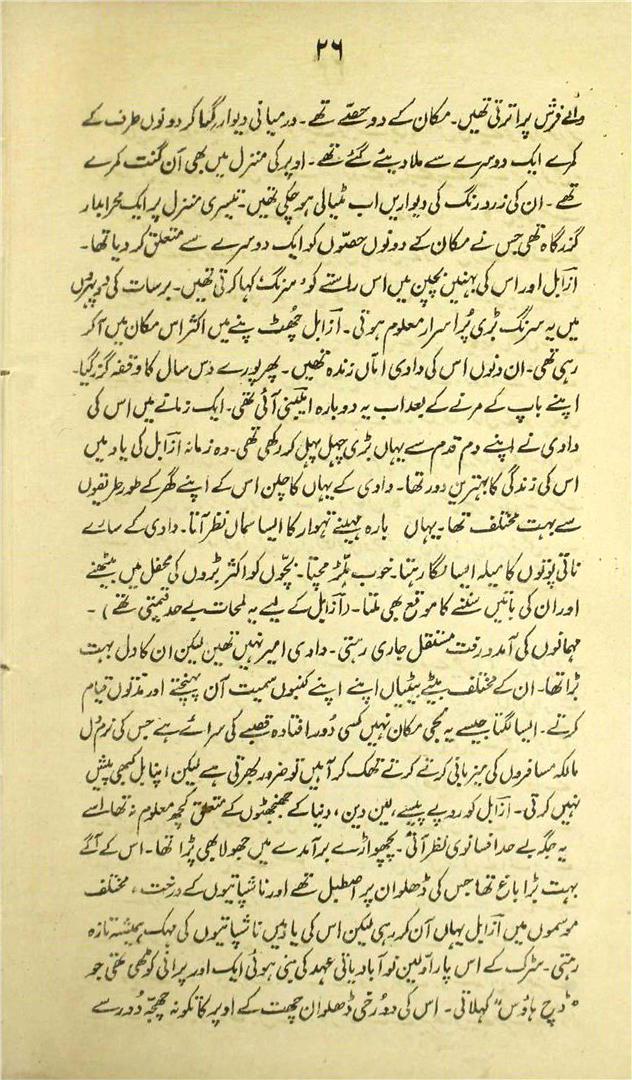 ۲۶
والے فرش پر اترتی تھیں۔ مکان کے دو حصّے تھے۔ درمیانی دیوار گرا کر دونوں طرف کے
کمرے ایک دوسرے سے ملا دیئے گئے تھے۔ اوپر کی منزل میں بھی اَن گنت کمرے
تھے۔ ان کی زرد رنگ کی دیواریں اب مٹیالی ہو چکی تھیں۔ تیسری منزل پر ایک محرابدار
گذرگاہ تھی جس نے مکان کے دونوں حصّوں کو ایک دوسرے سے متعلق کر دیا تھا۔
ازابل اور اس کی بہنیں بچپن میں اس راستے کو ’سرنگ‘ کہا کرتی تھیں۔ برسات کی دوپہروں
میں یہ سرنگ بڑی پُراسرار معلوم ہوتی۔ ازابل چُھٹ پنے میں اکثر اس مکان میں آکر
رہی تھی۔ ان دنوں اس کی دادی امّاں زندہ تھیں۔ پھر پورے دس سال کا وقفہ گزر گیا۔
اپنے باپ کے مرنے کے بعد اب یہ دوبارہ ایلبنی آئی تھی۔ ایک زمانے میں اس کی
دادی نے اپنے دم قدم سے یہاں بڑی چہل پہل کر رکھی تھی۔ وہ زمانہ ازابل کی یاد میں
اس کی زندگی کا بہترین دور تھا۔ دادی کے یہاں کا چلن اس کے اپنے گھر کے طور طریقوں
سے بہت مختلف تھا۔ یہاں بارہ مہینے تہوار کا ایسا سماں نظر آتا۔ دادی کے سارے
ناتی پوتوں کا میلہ ایسا لگا رہتا۔ خوب ہلّڑ مچتا۔ بچّوں کو اکثر بڑوں کی محفل میں بیٹھنے
اور ان کی باتیں سننے کا موقع بھی ملتا۔ (ازابل کے لیے یہ لمحات بے حد قیمتی تھے)۔
مہمانوں کی آمد و رفت مستقل جاری رہتی۔ دادی امیر نہیں تھیں لیکن ان کا دل بہت
بڑا تھا۔ ان کے مختلف بیٹے بیٹیاں اپنے اپنے کنبوں سمیت آن پہنچتے اور مدّتوں قیام
کرتے۔ ایسا لگتا جیسے یہ نجی مکان نہیں کسی دُور افتادہ قصبے کی سرائے ہے جس کی نرم دل
مالکہ مسافروں کی میزبانی کرتے کرتے تھک کر آہیں تو ضرور بھرتی ہے لیکن اپنا بل کبھی پیش
نہیں کرتی۔ ازابل کو روپے پیسے، لین دین، دنیا کے جھنجھٹوں کے متعلق کچھ معلوم نہ تھا۔ اسے
یہ جگہ بے حد افسانوی نظر آتی۔ پچھواڑے برآمدے میں جھولا بھی پڑا تھا۔ اس کے آگے
بہت بڑا باغ تھا جس کی ڈھلوان پر اصطبل تھے اور ناشپاتیوں کے درخت، مختلف
موسموں میں ازابل یہاں آن کر رہی لیکن اس کی یاد میں ناشپاتیوں کی مہک ہمیشہ تازہ
رہتی۔ سڑک کے اس پار اوّلین نو آبادیاتی عہد کی بنی ہوئی ایک اور پرانی کوٹھی تھی جو
”ڈچ ہاؤس“ کہلاتی۔ اس کی دو رُخی ڈھلوان چھت کے اوپر کا تکونہ چھجّہ دُور سے